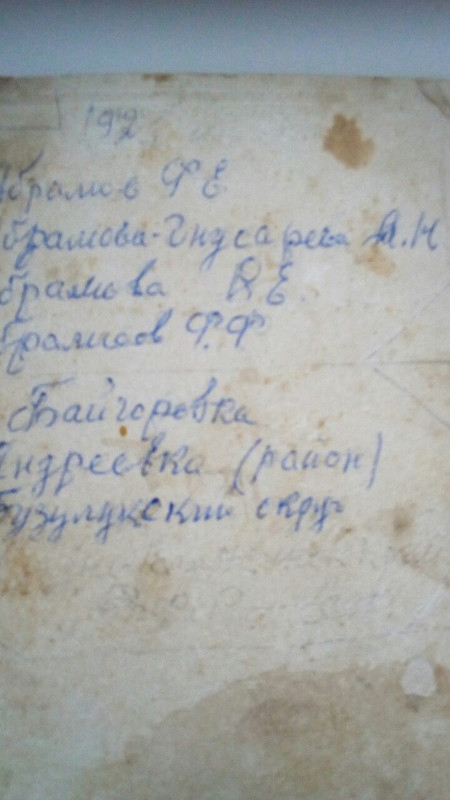 192
Абрамов Ф Е
брамова-Гнусарева А.Н
брамова Е.
брамов Ф.Ф
Байгоровка
Андреевка (район)
Бузулукский округ